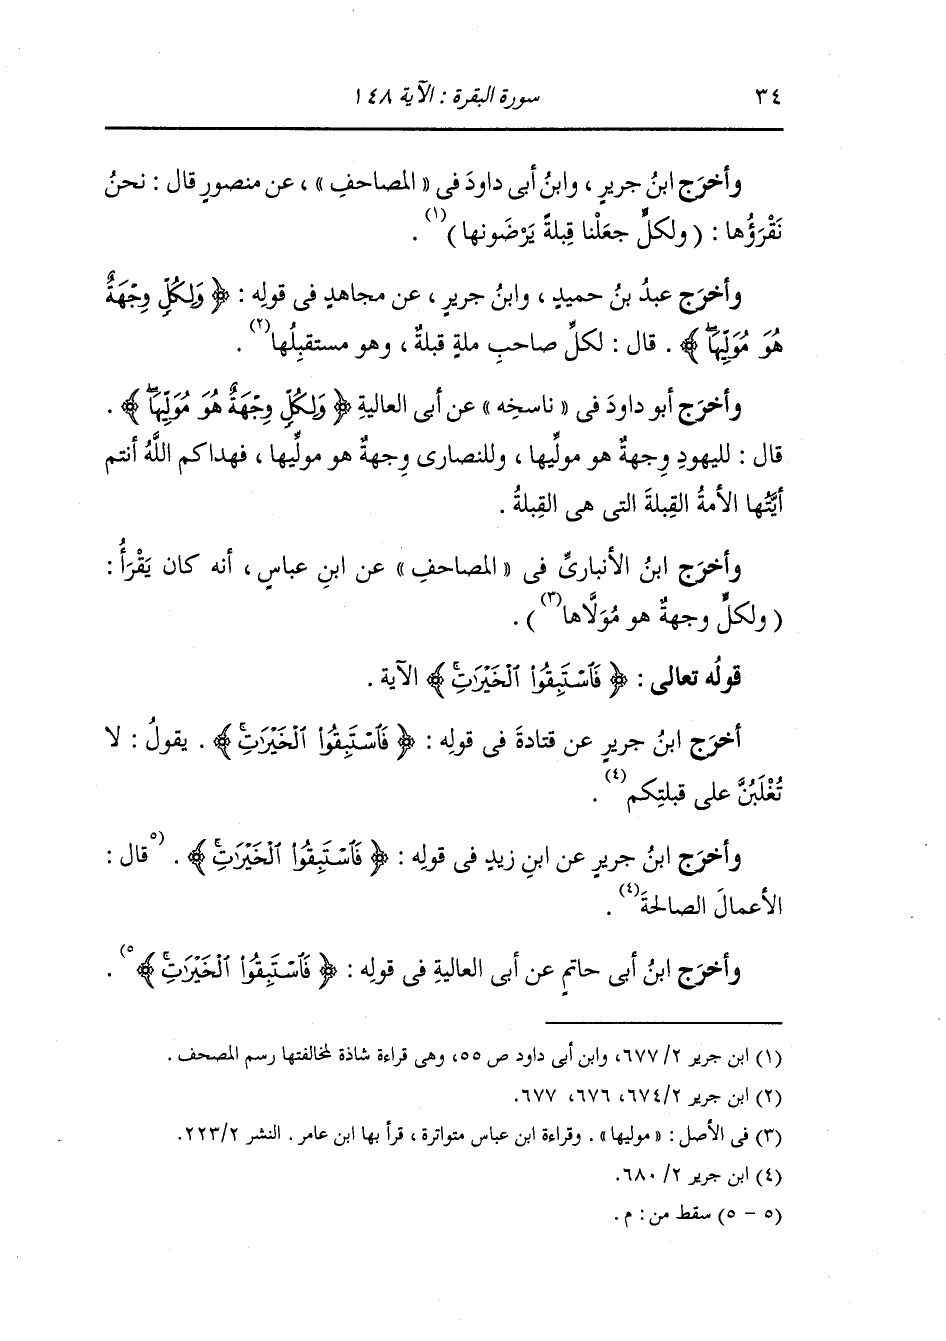 ٣٤ سورة البقرة : الآية ١٤٨
وأخرَج ابنُ جريرٍ ، وابنُ أبى داودَ فى « المصاحفِ » ، عن منصورٍ قال : نحنُ
نَقْرَؤُها : ( ولكلٍّ جعَلْنا قِبلةً يَرْضَونها )(١) .
وأخرَج عبدُ بنُ حميدٍ ، وابنُ جريرٍ ، عن مجاهدٍ فى قولِه : ﴿ وَلِكُلٍّ وِجْهَةٌ
هُوَ مُوَلِّيهَاۖ ﴾ . قال : لكلِّ صاحبِ ملةٍ قبلةٌ ، وهو مستقبِلُها(٢) .
وأخرَج أبو داودَ فى « ناسخِه » عن أبى العاليةِ ﴿ وَلِكُلٍّ وِجْهَةٌ هُوَ مُوَلِّيهَاۖ ﴾ .
قال : لليهودِ وِجهةٌ هو مولِّيها ، وللنصارى وِجهةٌ هو مولِّيها ، فهداكم اللَّهُ أنتم
أيَّتُها الأمةُ القِبلةَ التى هى القِبلةُ .
وأخرَج ابنُ الأنبارىِّ فى « المصاحفِ » عن ابنِ عباسٍ ، أنه كان يَقْرَأُ :
( ولكلٍّ وجهةٌ هو مُوَلَّاها(٣) ) .
قولُه تعالى : ﴿ فَٱسْتَبِقُوا۟ ٱلْخَيْرَٰتِۚ ﴾ الآية .
أخرَج ابنُ جريرٍ عن قتادةَ فى قولِه : ﴿ فَٱسْتَبِقُوا۟ ٱلْخَيْرَٰتِۚ ﴾ . يقولُ : لا
تُغْلَبُنَّ على قبلتِكم(٤) .
وأخرَج ابنُ جريرٍ عن ابنِ زيدٍ فى قولِه : ﴿ فَٱسْتَبِقُوا۟ ٱلْخَيْرَٰتِۚ ﴾ . (٥قال :
الأعمالَ الصالحةَ(٤) .
وأخرَج ابنُ أبى حاتمٍ عن أبى العاليةِ فى قولِه : ﴿ فَٱسْتَبِقُوا۟ ٱلْخَيْرَٰتِۚ ﴾٥) .
(١) ابن جرير ٢/ ٦٧٧، وابن أبى داود ص ٥٥، وهى قراءة شاذة لمخالفتها رسم المصحف .
(٢) ابن جرير ٢/ ٦٧٤، ٦٧٦، ٦٧٧.
(٣) فى الأصل : « موليها » . وقراءة ابن عباس متواترة ، قرأ بها ابن عامر . النشر ٢/ ٢٢٣.
(٤) ابن جرير ٢/ ٦٨٠.
(٥ - ٥) سقط من : م .